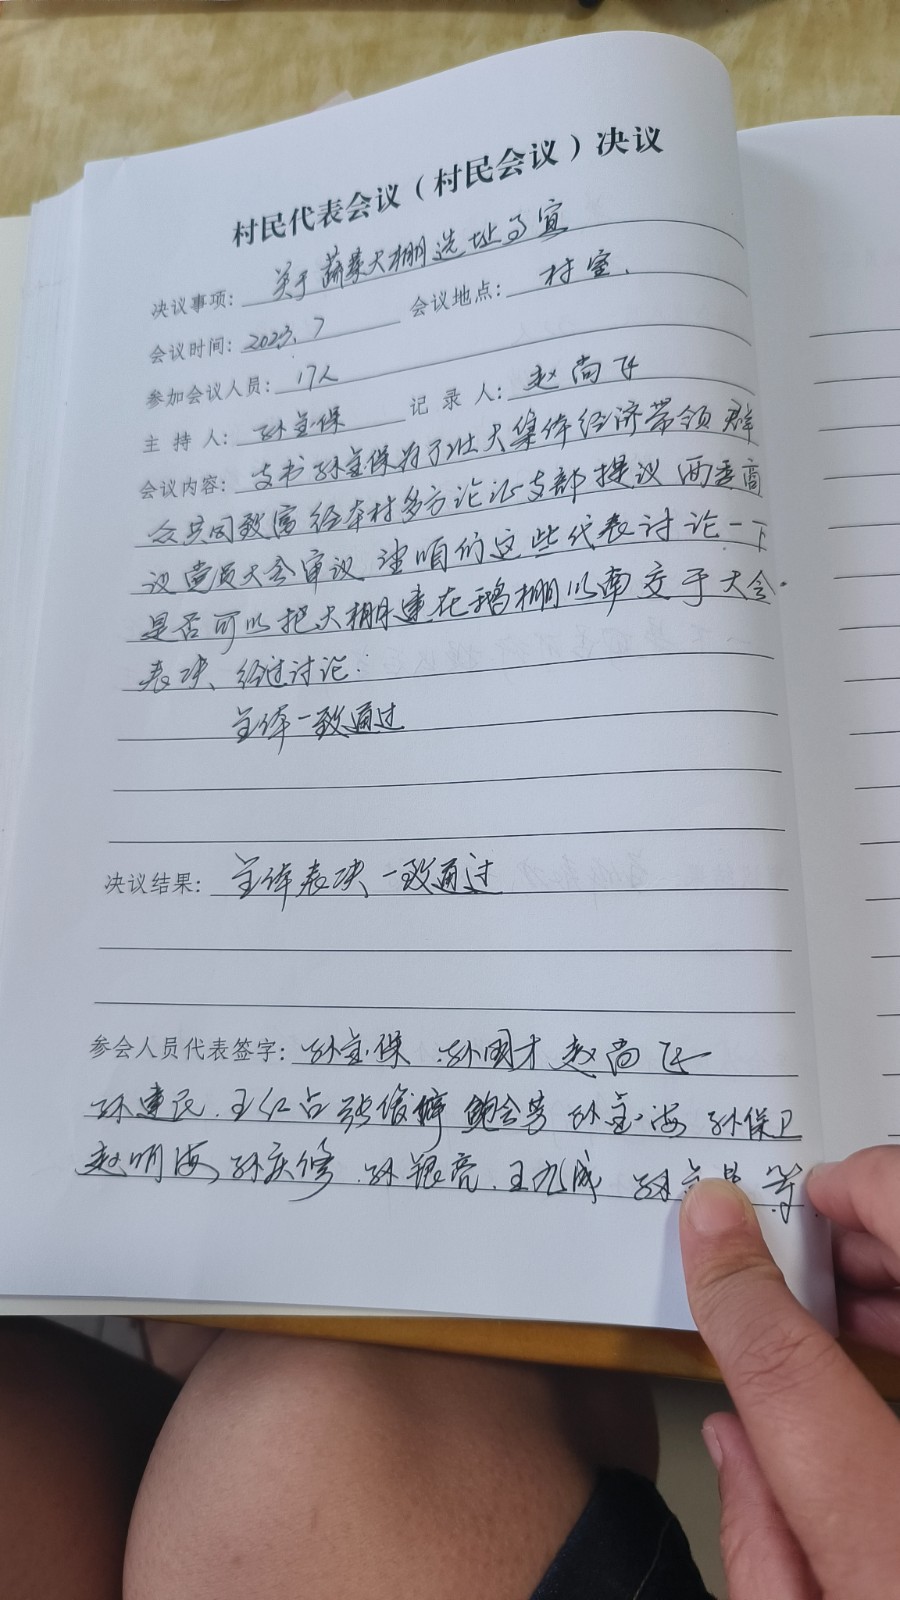 村民代表会议（村民会议）决议
决议事项：关于蔬菜大棚选址事宜
会议时间：2023.7 会议地点：村室.
参加会议人员：17人
主持人：孙宝保 记录人：赵尚飞
会议内容：支书孙宝保为了壮大集体经济带领群
众共同致富经本村多方论证支部提议两委商
议党员大会审议 请咱们这些代表讨论一下
是否可以把大棚建在鸡棚以南交于大会
表决、经过讨论：
全体一致通过
决议结果：全体表决一致通过
参会人员代表签字：孙宝保 孙国才 赵尚飞
孙建民.王红占 鲍会芳 孙宝海 孙保卫
赵明海 孙庆修.孙银亮.王九成 孙 等